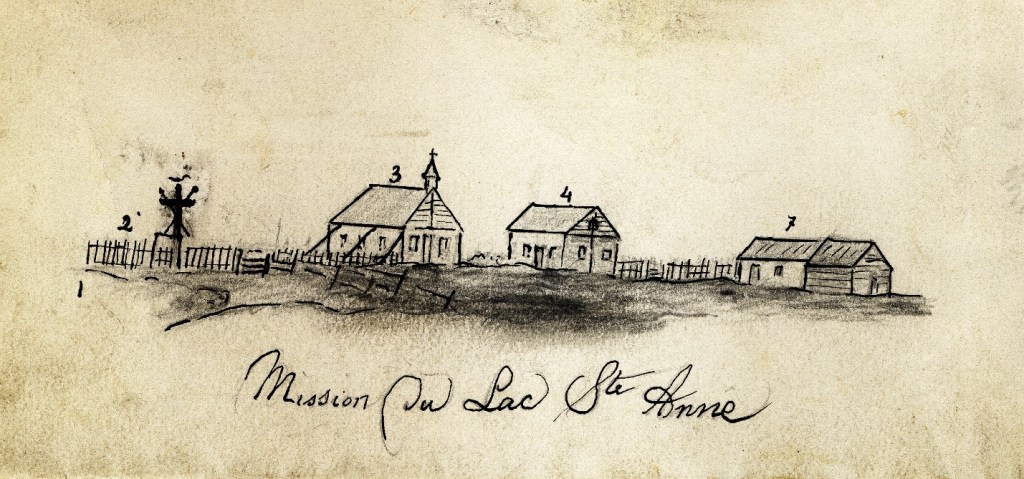 2 3 4 7
1
Mission Du Lac Ste Anne